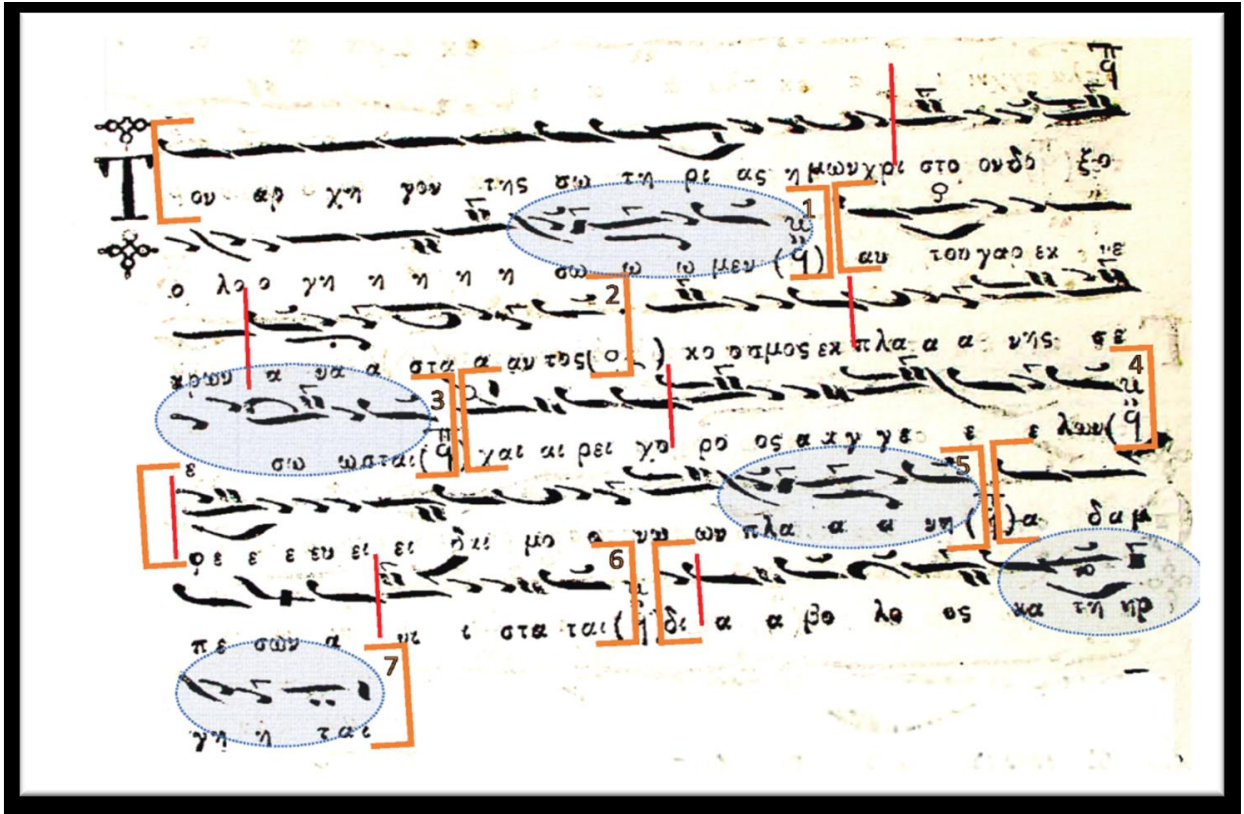 Τ ον αρ χη γον της σω τη ρι ας η μων χρι στο ον δο ξο
ο λο ο γη η η η η σω ω ω μεν 1 αυ του γαρ εκ νε
κρων α να α στα α αν τος 2 κο ο σμος εκ πλα α α νης σε
ε σω ωσται 3 χαι αι ρει χο ρο ος α αγ γε ε ε λων 4
φε ε ε ευ ει ει δαι μο ο νων ων πλα α α νη 5 α δαμ
πε σων α νι ι στα ται 6 δι α α βο λο ος κα τη ηρ
γη η ται 7